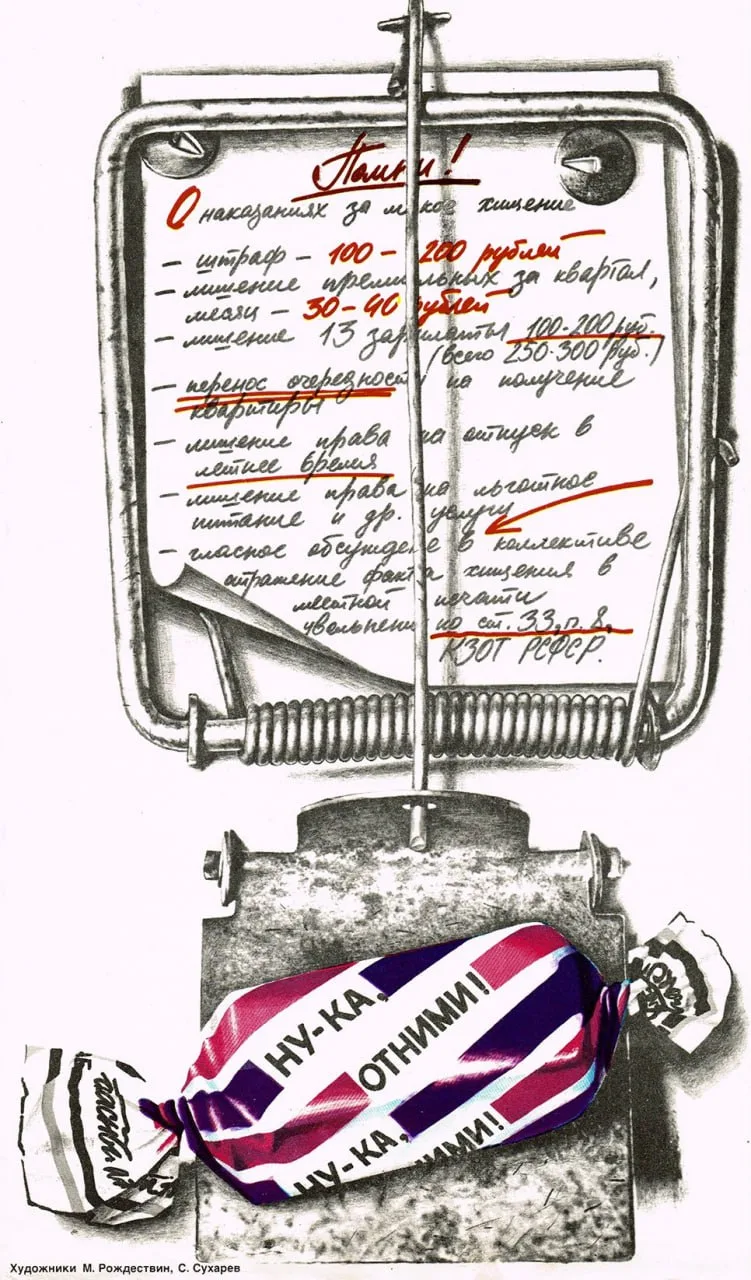 Помни!
О наказаниях за мелкое хищение
— штраф — 100 — 200 рублей
— лишение премиальных за квартал,
месяц — 30-40 рублей
— лишение 13 зарплаты 100-200 руб.
(всего 250-300 руб.)
— перенос очередности на получение
квартиры
— лишение права на отпуск в
летнее время
— лишение права на льготное
питание и др. услуги
— гласное обсуждене в коллективе
отражение факта хищения в
местной печати
увольнение по ст. 33, п. 8,
КЗОТ РСФСР.
НУ-КА,
ОТНИМИ!
НУ-КА,
ИМИ!
Художники М. Рождествин, С. Сухарев